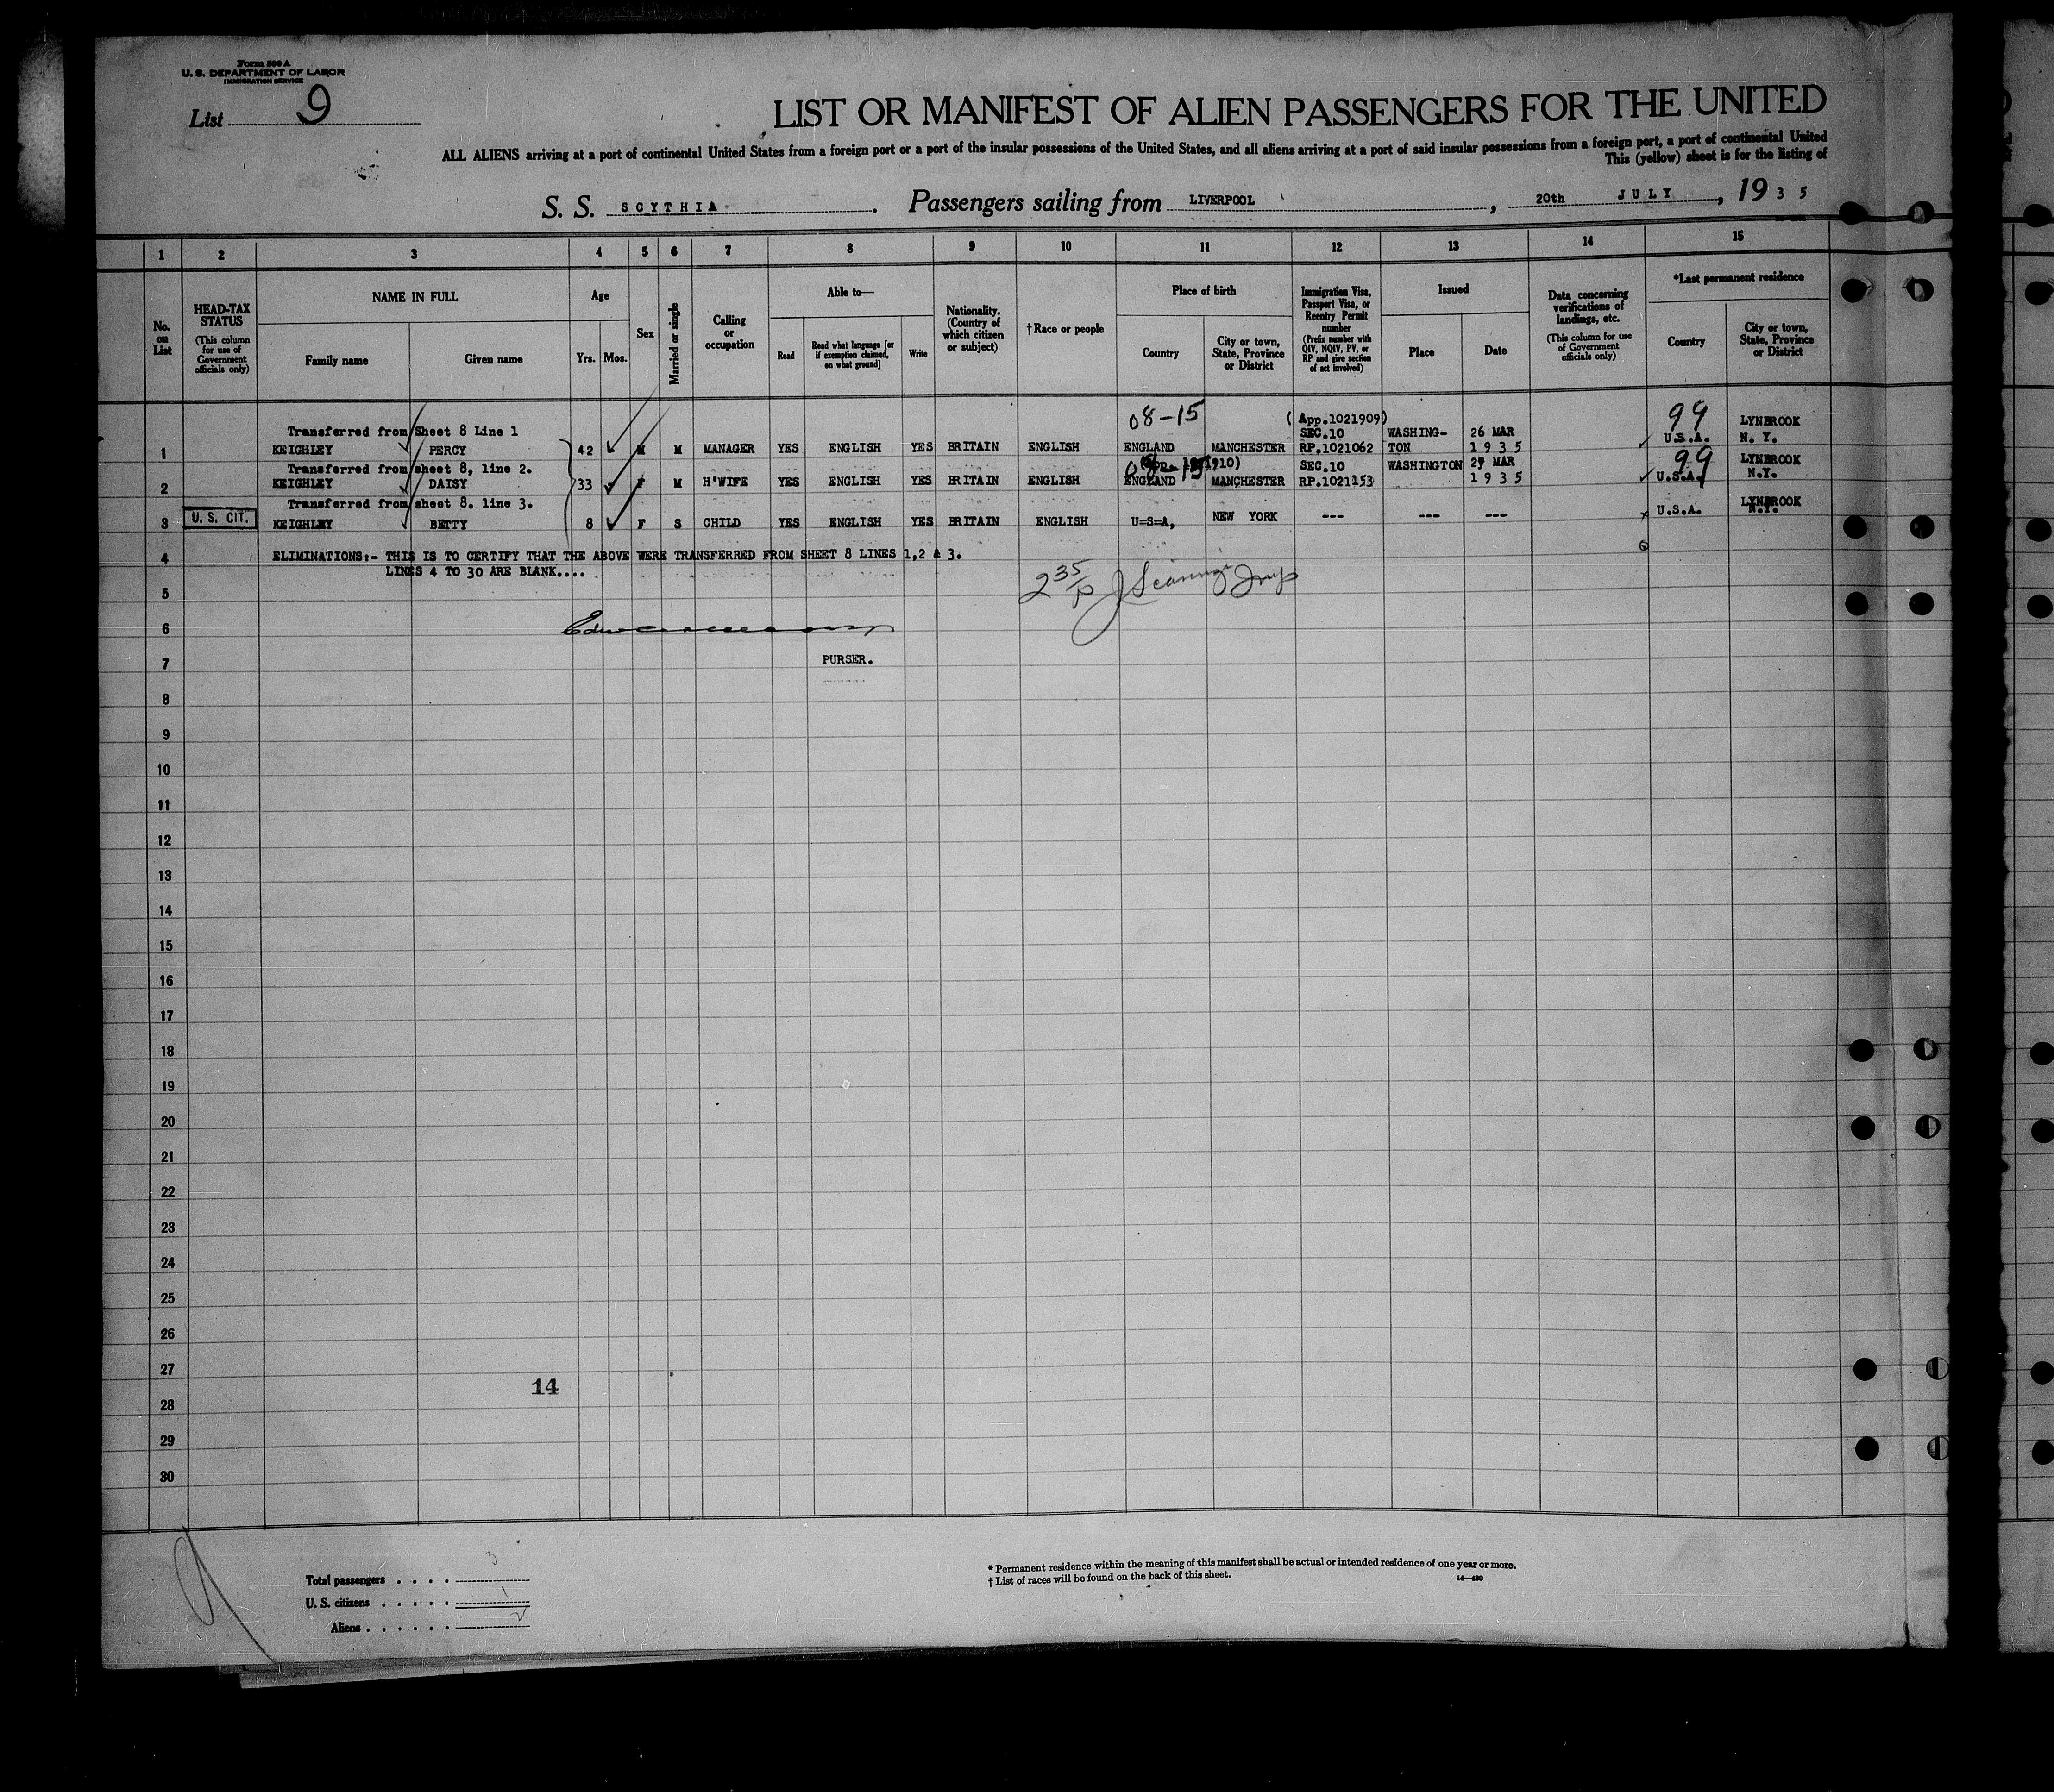 Form 500 A
U. S. DEPARTMENT OF LABOR
IMMIGRATION SERVICE
List 9
LIST OR MANIFEST OF ALIEN PASSENGERS FOR THE UNITED
ALL ALIENS arriving at a port of continental United States from a foreign port or a port of the insular possessions of the United States, and all aliens arriving at a port of said insular possessions from a foreign port, a port of continental United
This (yellow) sheet is for the listing of
S. S. SCYTHIA. Passengers sailing from LIVERPOOL, 20th JULY, 1935
1 2 3 4 5 6 7 8 9 10 11 12 13 14 15
No. on List
HEAD-TAX STATUS
(This column for use of Government officials only)
NAME IN FULL
Family name
Given name
Age
Yrs. Mos.
Sex
Married or single
Calling or occupation
Able to—
Read
Read what language [or if exemption claimed, on what ground]
Write
Nationality. (Country of which citizen or subject)
†Race or people
Place of birth
Country
City or town, State, Province or District
Immigration Visa, Passport Visa, or Reentry Permit number
(Prefix number with QIV, NQIV, PV, or RP and give section of act involved)
Issued
Place
Date
Data concerning verifications of landings, etc.
(This column for use of Government officials only)
*Last permanent residence
Country
City or town, State, Province or District
08-15 (App.1021909) 99 LYNBROOK
Transferred from Sheet 8 Line 1 SEC.10 WASHING- 26 MAR
1 KEIGHLEY PERCY 42 M M MANAGER YES ENGLISH YES BRITAIN ENGLISH ENGLAND MANCHESTER RP.1021062 TON 1935 U.S.A. N. Y.
Transferred from sheet 8, line 2. SEC.10 WASHINGTON 29 MAR 99 LYNBROOK
2 KEIGHLEY DAISY 33 F M H'WIFE YES ENGLISH YES BRITAIN ENGLISH ENGLAND MANCHESTER RP.1021153 1935 U.S.A. N.Y.
Transferred from sheet 8. line 3.
3 U. S. CIT. KEIGHLEY BETTY 8 F S CHILD YES ENGLISH YES BRITAIN ENGLISH U=S=A, NEW YORK --- --- --- U.S.A. LYNBROOK N.Y.
4 ELIMINATIONS:- THIS IS TO CERTIFY THAT THE ABOVE WERE TRANSFERRED FROM SHEET 8 LINES 1,2 & 3.
LINES 4 TO 30 ARE BLANK....
5 2 35/P
6
7 PURSER.
8
9
10
11
12
13
14
15
16
17
18
19
20
21
22
23
24
25
26
27
14
28
29
30
Total passengers . . . . 3
U. S. citizens . . . . . 1
Aliens . . . . . . 2
* Permanent residence within the meaning of this manifest shall be actual or intended residence of one year or more.
† List of races will be found on the back of this sheet.
14—430